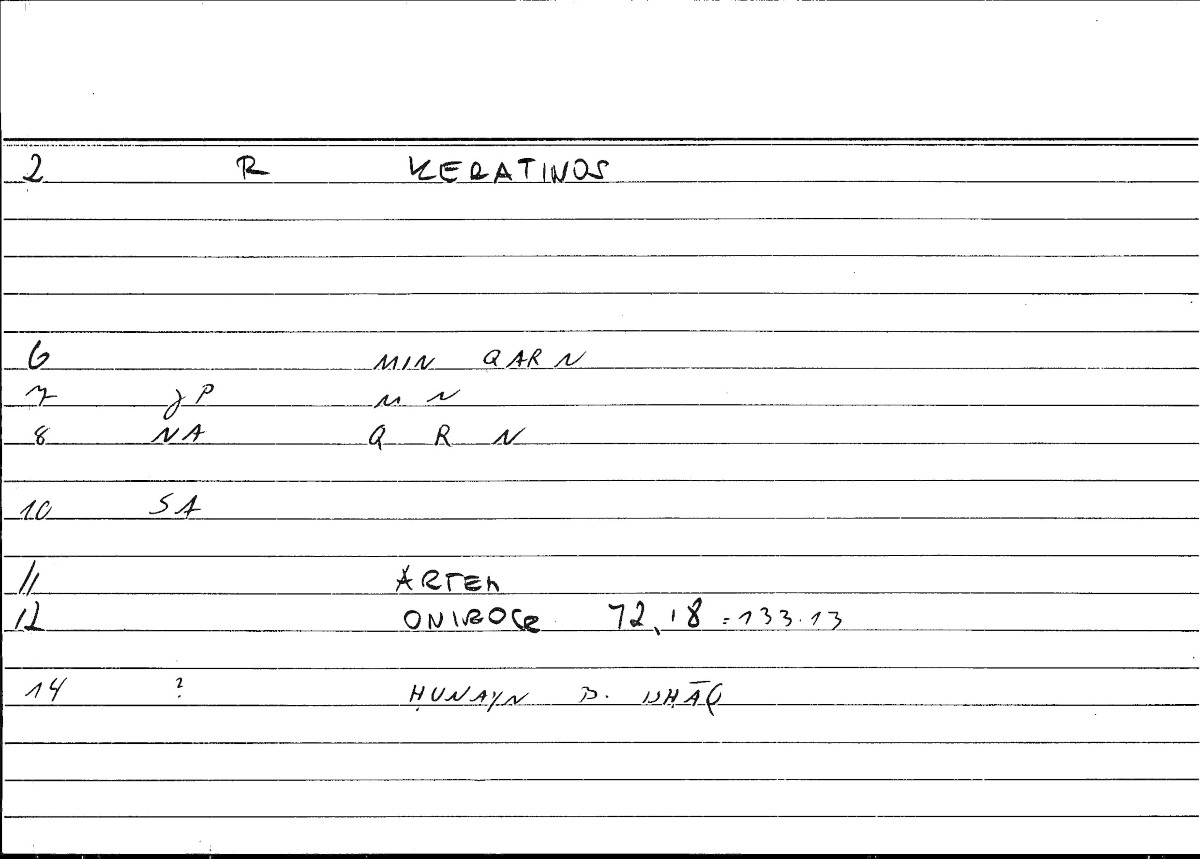 2 R KERATINOS
6 MIN QARN
7 JP M N
8 NA Q R N
10 SA
11 ARTEM
12 ONIROCR 72,18 = 133.13
14 ? ḤUNAYN B. ISḤĀQ